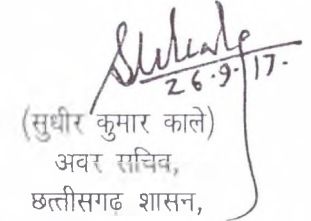 26.9.17.
(सुधीर कुमार काले)
अवर सचिव,
छत्तीसगढ़ शासन,